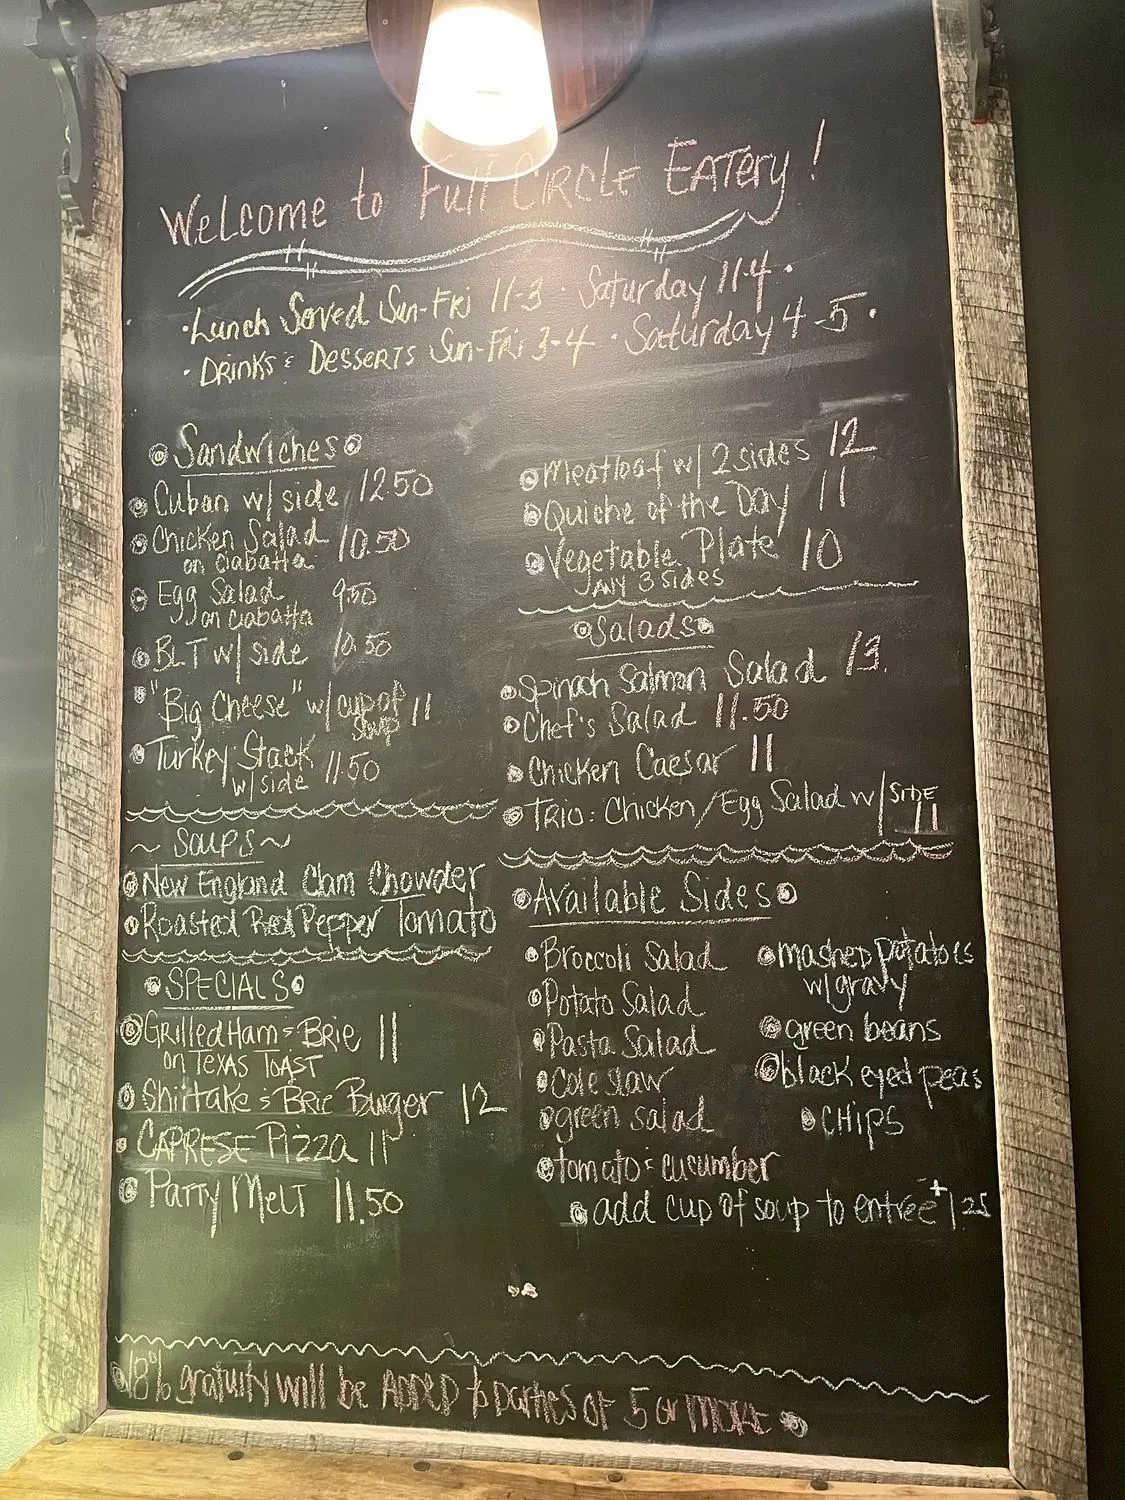 Welcome to Full Circle Eatery!
·Lunch Served Sun-Fri 11-3 · Saturday 11-4 ·
· Drinks & Desserts Sun-Fri 3-4 · Saturday 4-5 ·
Sandwiches
Cuban w/ side 12.50
Chicken Salad 10.50
on ciabatta
Egg Salad 9.50
on ciabatta
BLT w/ side 10.50
"Big Cheese" w/ cup of
soup 11
Turkey Stack 11.50
w/ side
~ Soups ~
New England Clam Chowder
Roasted Red Pepper Tomato
SPECIALS
Grilled Ham & Brie 11
on Texas Toast
Shiitake & Brie Burger 12
CAPRESE Pizza 11
Patty Melt 11.50
Meatloaf w/ 2 sides 12
Quiche of the Day 11
Vegetable Plate 10
ANY 3 sides
Salads
Spinach Salmon Salad 13.
Chef's Salad 11.50
Chicken Caesar 11
TRIO: Chicken/Egg Salad w/ SIDE
11
Available Sides
Broccoli Salad
Potato Salad
Pasta Salad
Cole slaw
green salad
tomato & cucumber
mashed potatoes
w/ gravy
green beans
black eyed peas
CHIPS
add cup of soup to entrée +1.25
18% gratuity will be ADDED to parties of 5 or MORE